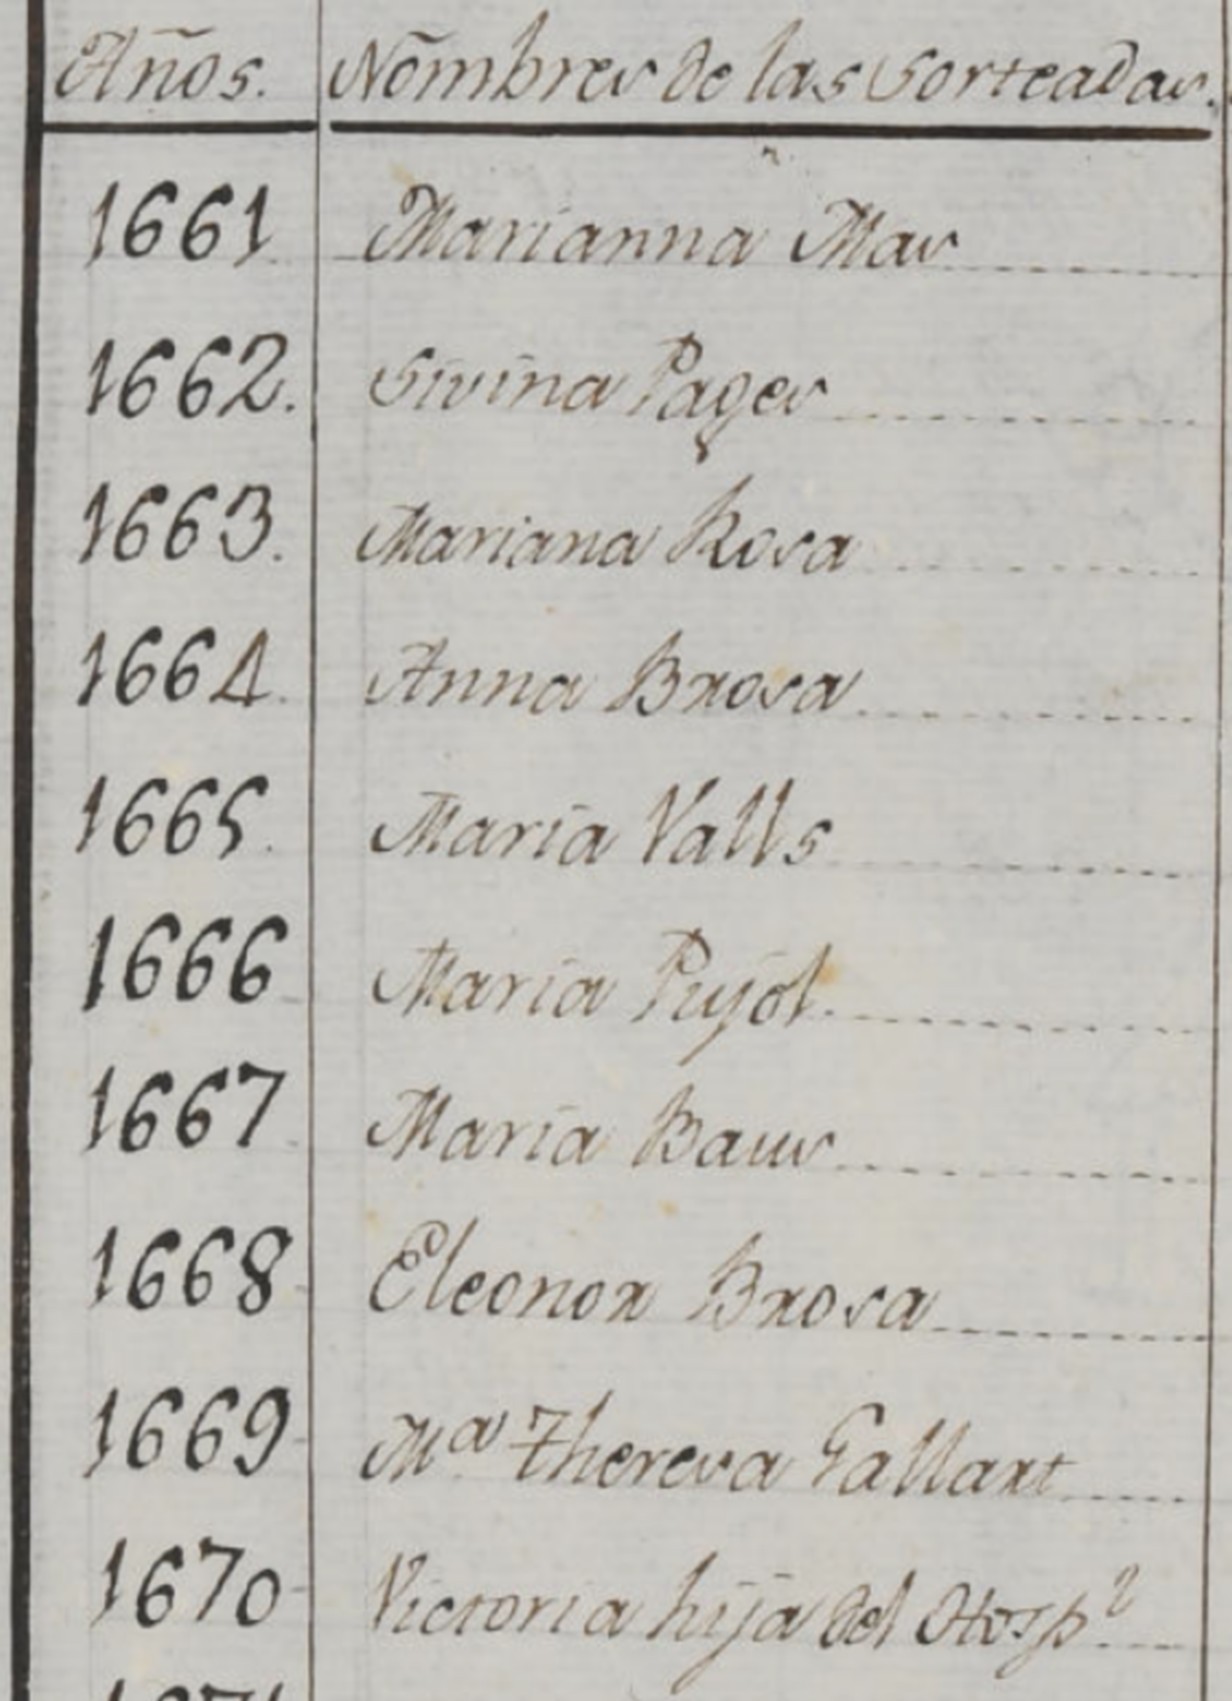 Años. Nombres de las Sorteadas.
1661 Marianna Mas
1662. Sivina Pages
1663. Mariana Rosa
1664. Anna Brosa
1665. Maria Valls
1666 Maria Pujol.
1667 Maria Baus
1668 Eleonor Brosa
1669 Mª Theresa Gallart
1670 Victoria hija del Hospl